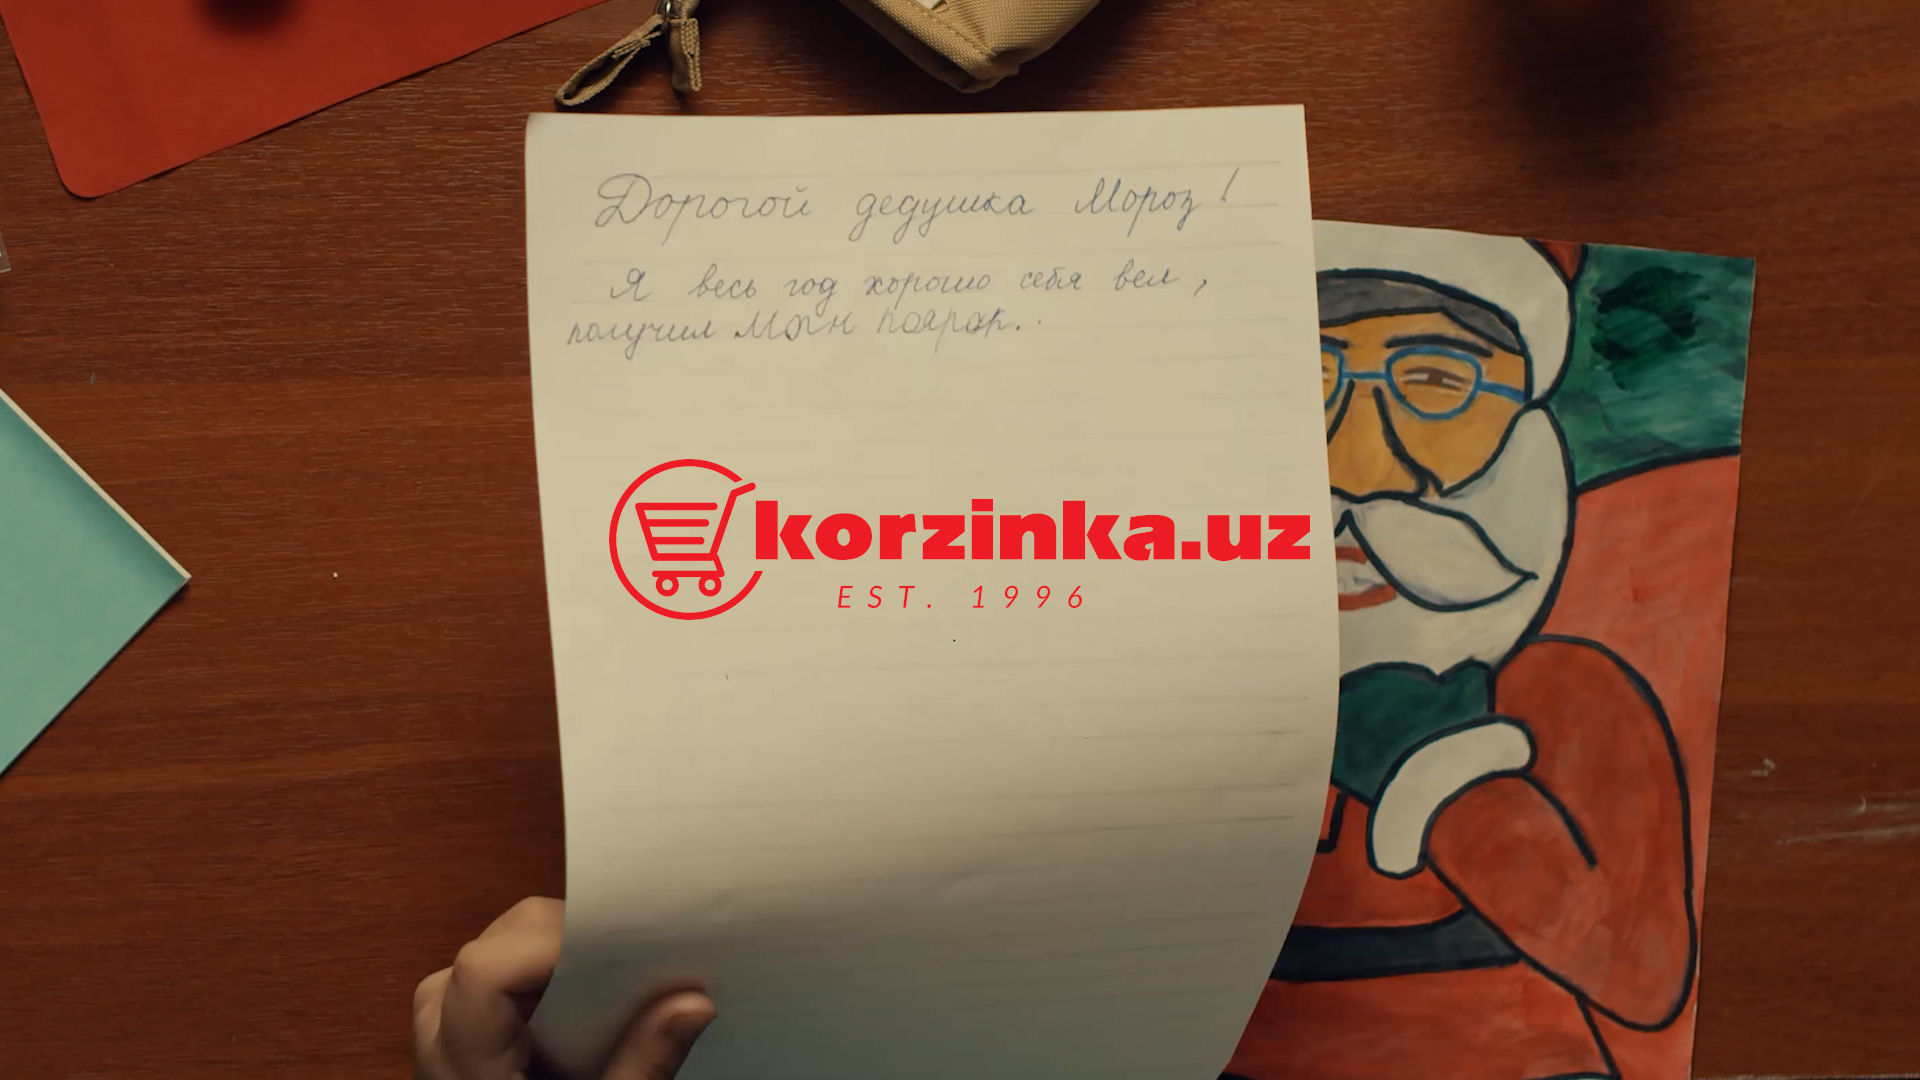 Дорогой дедушка Мороз!
Я весь год хорошо себя вел,
получил
korzinka.uz
EST. 1996